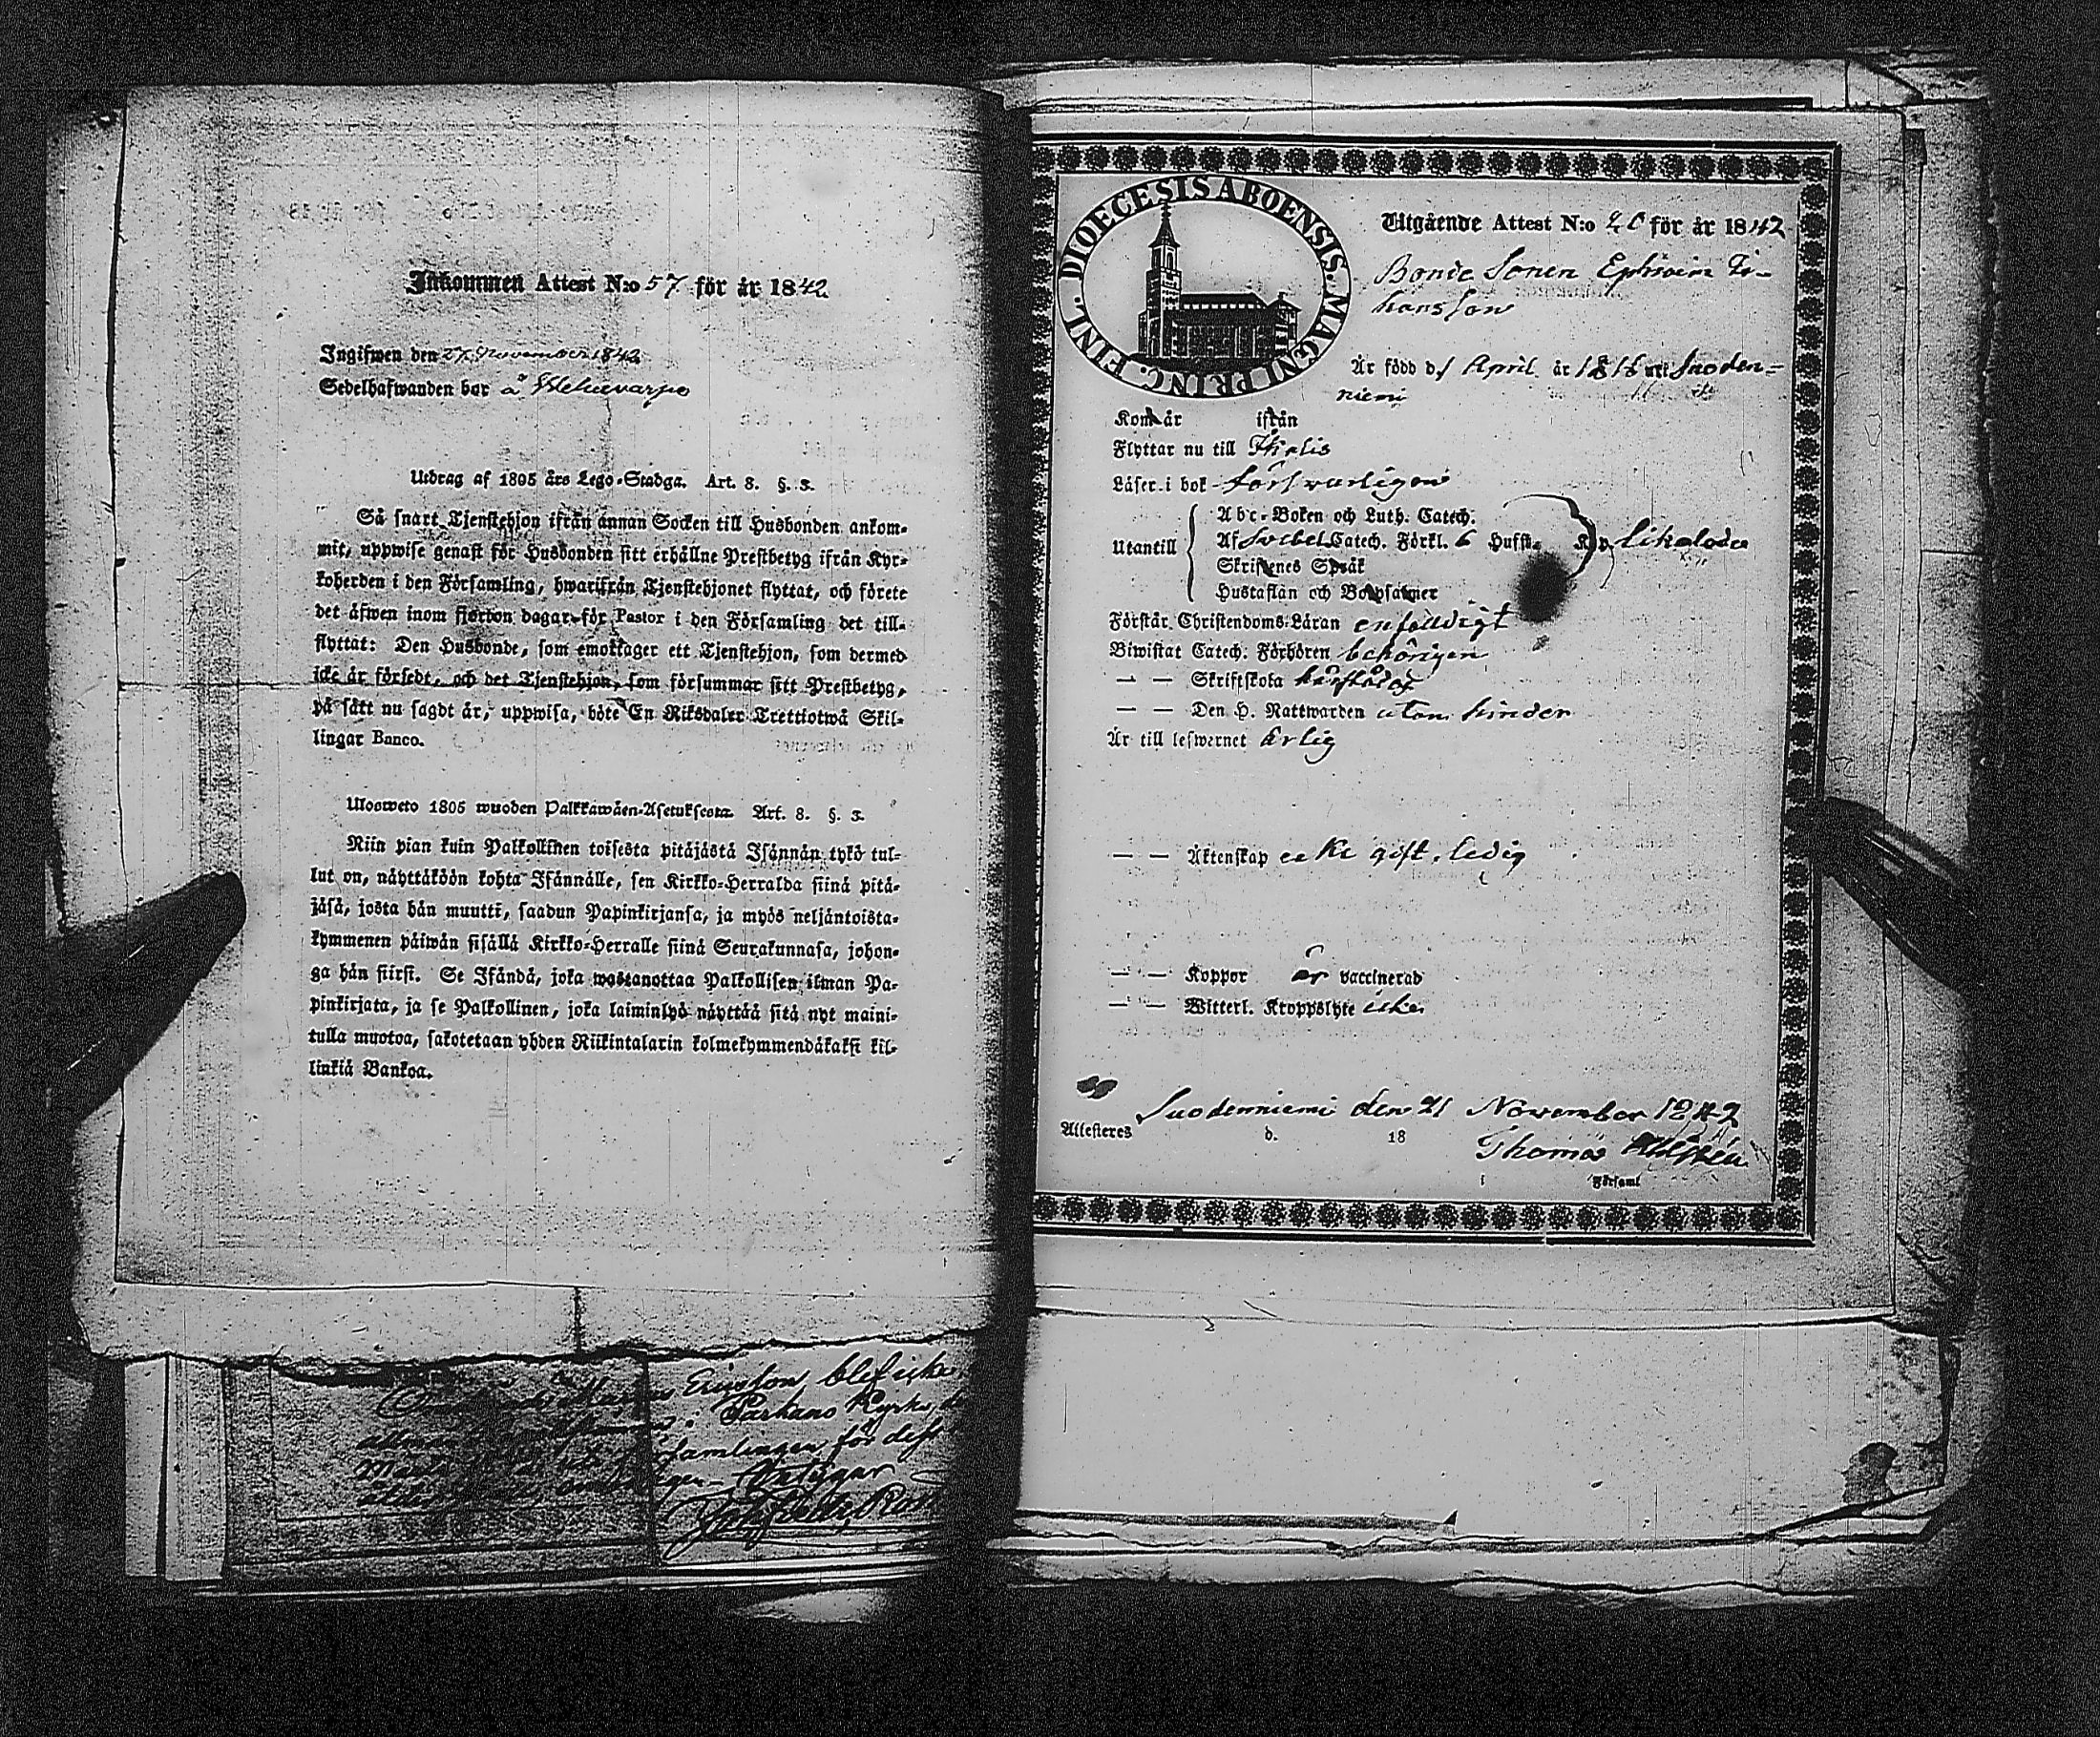 Inkommen Attest N:o 57 för år 1842
Ingifwen den 27 November 1842
Sedelhafwanden bor å
Utdrag af 1805 års Lego-Stadga. Art. 8. §. 3.
Så snart Tjenstehjon ifrån annan Socken till Husbonden ankom-
mit, uppwise genast för Husbonden sitt erhållne Prestbetyg ifrån Kyr-
koherden i den Församling, hwarifrån Tjenstehjonet flyttat, och förete
det äfwen inom fjorton dagar för Pastor i den Församling det till-
flyttat: Den Husbonde, som emottager ett Tjenstehjon, som dermed
icke är försedt, och det Tjenstehjon, som försummar sitt Prestbetyg,
på sätt nu sagdt är, uppwisa, böte En Riksdaler Trettiotwå Skil-
lingar Banco.
Ulosweto 1805 wuoden Palkkawäen-Asetuksesta. Art. 8. §. 3.
Niin pian kuin Palkollinen toisesta pitäjästä Isännän tykö tul-
lut on, näyttäköön kohta Isännälle, sen Kirkko-Herralda siinä pitä-
jäsä, josta hän muutti, saadun Papinkirjansa, ja myös neljäntoista-
kymmenen päiwän sisällä Kirkko-Herralle siinä Seurakunnasa, johon-
ga hän siirsi. Se Isändä, joka wastanottaa Palkollisen ilman Pa-
pinkirjata, ja se Palkollinen, joka laiminlyö näyttää sitä nyt maini-
tulla muotoa, sakotetaan yhden Riikintalarin kolmekymmendäkaksi kil-
linkiä Bankoa.
Ericsson blef icke
i Parkano Kyrka
församlingen för dess
DIOECESIS ABOENSIS. MAGNI PRINC. FINL.
Utgående Attest N:o 20 för år 1842
Bonde Sonen Ephraim Jo-
hansson
Är född d. 1 April år 1816 uti Suoden-
niemi
Kom år ifrån
Flyttar nu till Ikalis
Läser i bok försvarligen
Abc-Boken och Luth. Catech.
Utantill Af Svebel. Catech. Förkl. 6 Hufst. likaledes
Skriftenes Språk
Hustaflan och Botpsalmer
Förstår Christendoms-Läran enfalldigt
Biwistat Catech. Förhören behörigen
— — Skriftskola
— — Den H. Nattwarden utan hinder
Är till lefwernet ärlig
— — Äktenskap ecke gift, ledig
— — Koppor är vaccinerad
— — Witterl. Kroppslyte icke
Suodenniemi den 21 November 1842
Attesteres d. 18
Thomas
i Församl